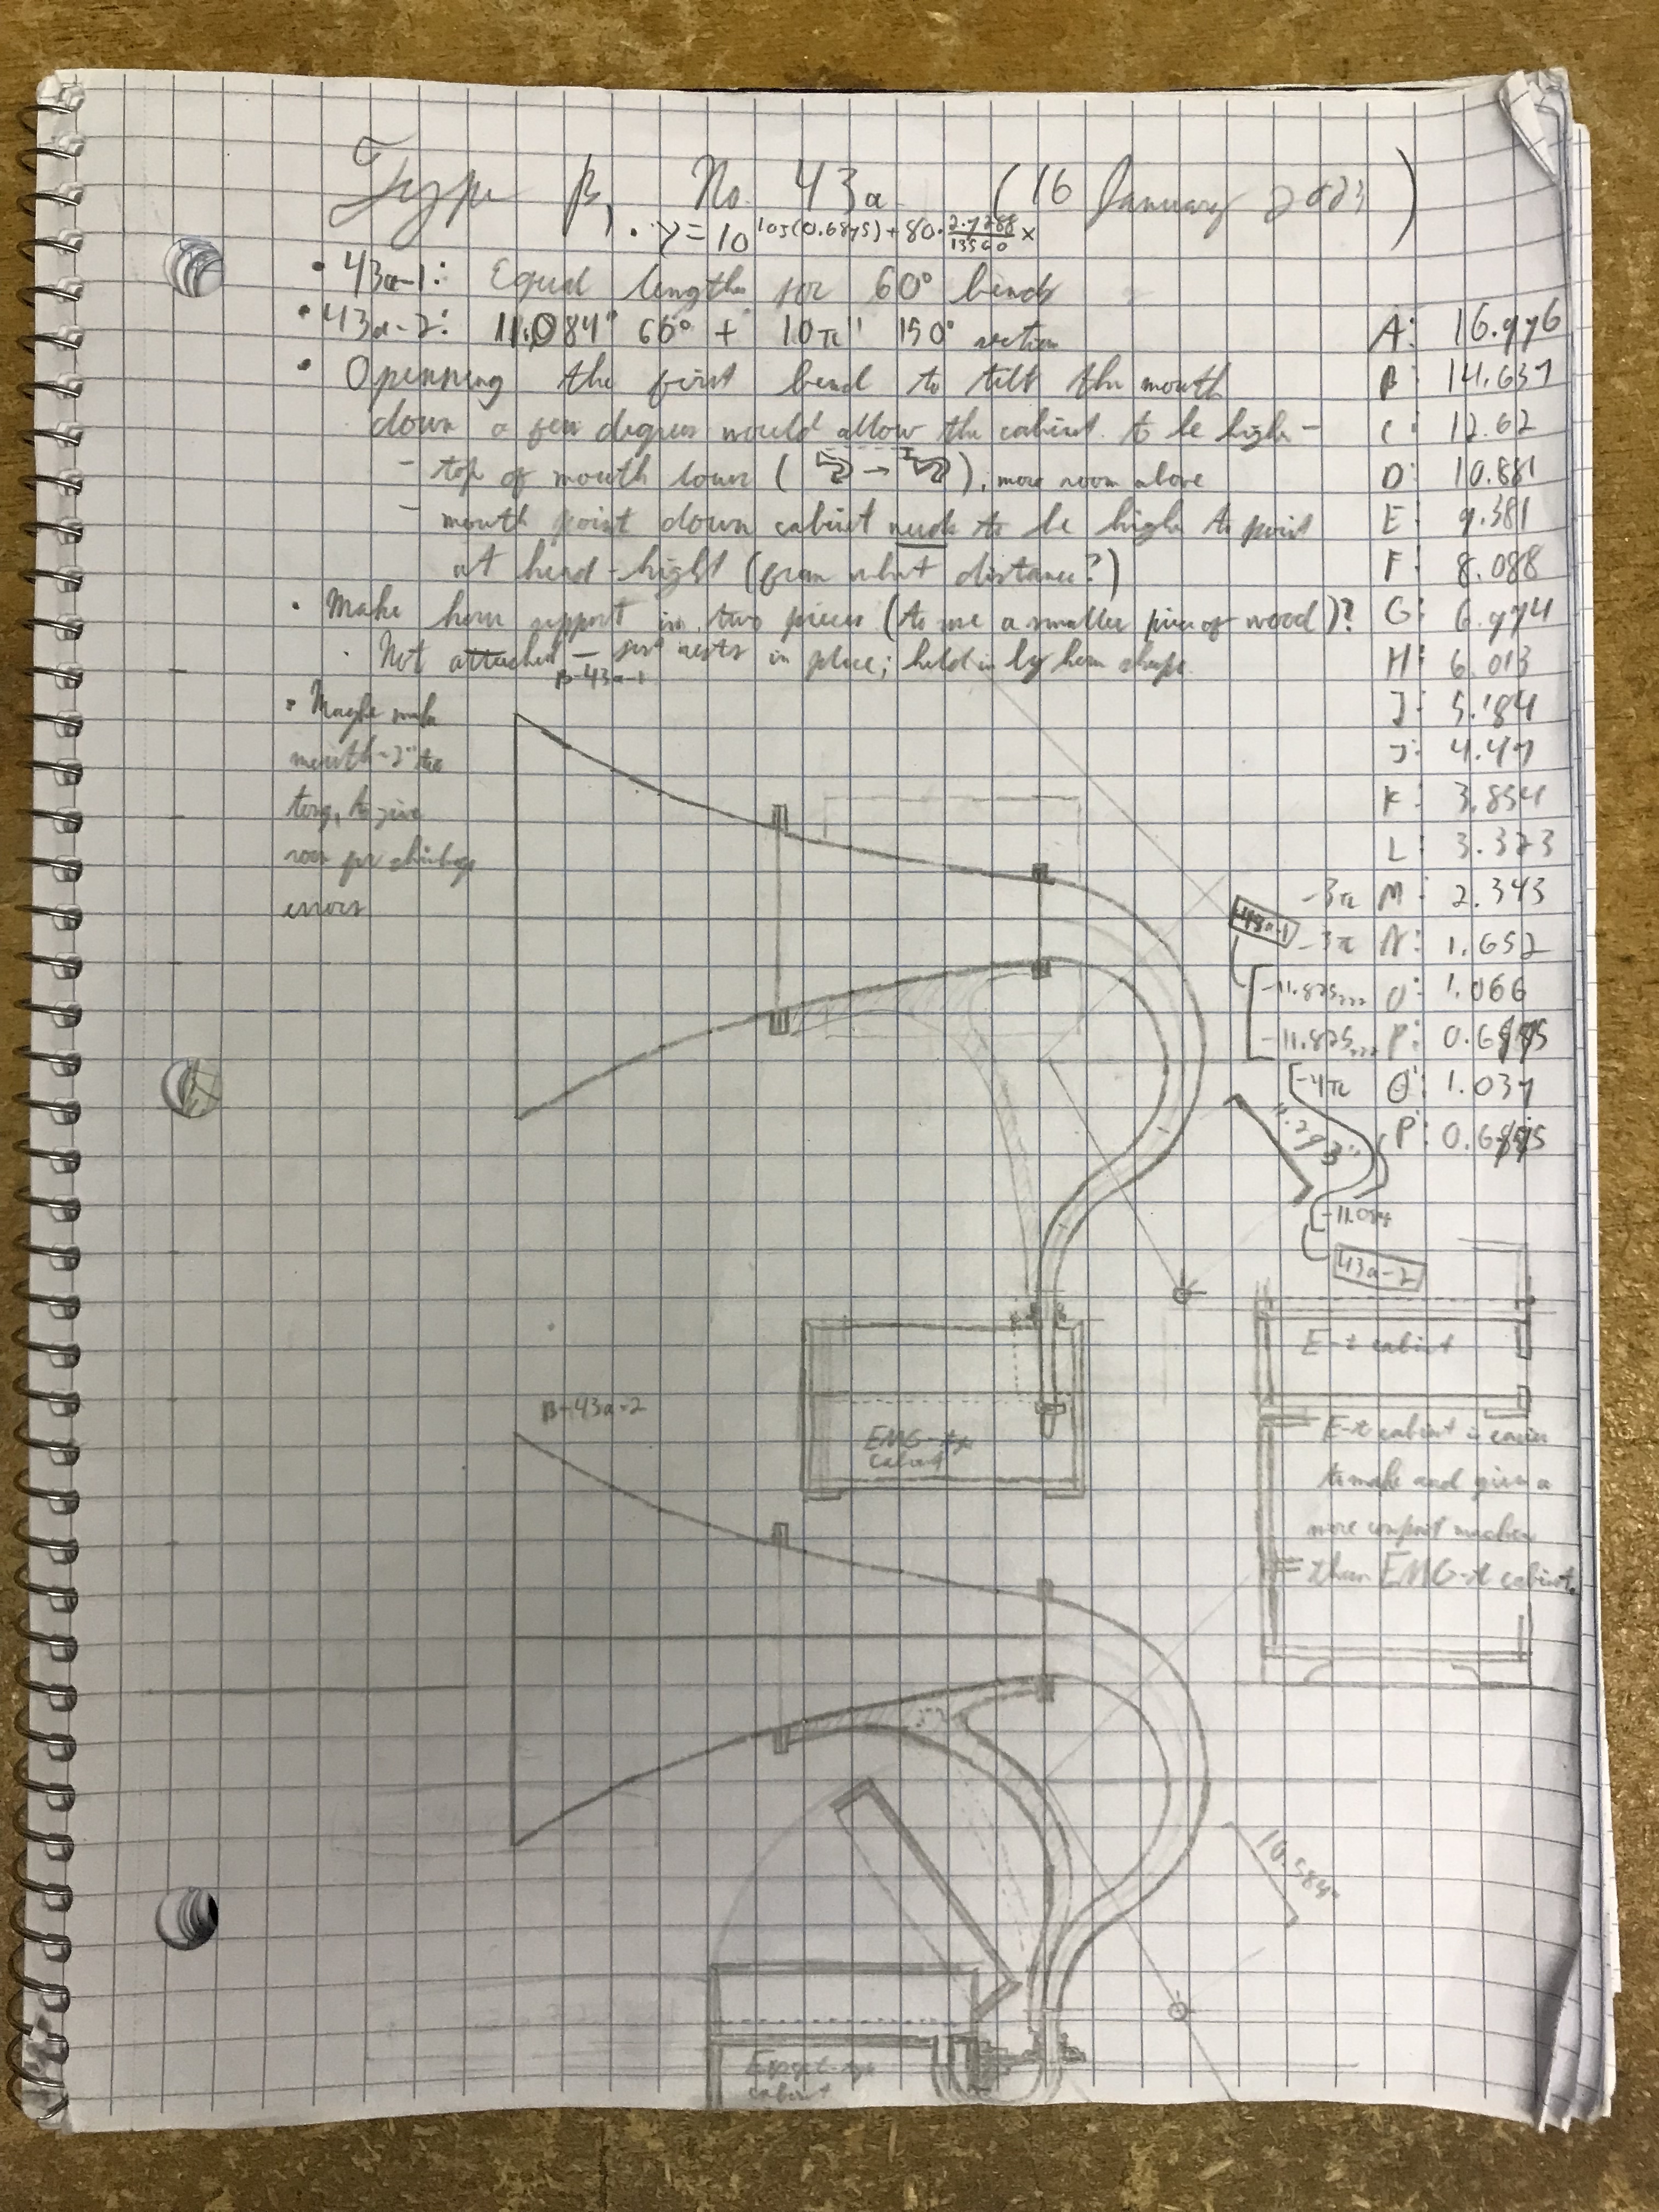 Type β, No. 43a (16 January 2023)
• y = 10^(log(0.6875) + 80 · 2.7288/13560 x)
• 43a-1: Equal lengths for 60° bends
• 43a-2: 11.084" 60° + 10π" 150° section
• Openning the first bend to tilt the mouth
down a few degrees would allow the cabinet to be high -
- top of mouth lower ( → ), more room above
- mouth point down cabinet needs to be high to point
at head-hight (from what distance?)
• Make horn support in two pieces (to use a smaller piece of wood)?
· Not attached - just rests in place; held in by horn shape.
A: 16.976
B: 14.637
C: 12.62
D: 10.881
E: 9.381
F: 8.088
G: 6.974
H: 6.013
I: 5.184
J: 4.47
K: 3.854
L: 3.323
-3π M: 2.343
-3π N: 1.652
43a-1
-11.825... O: 1.066
-11.825... P: 0.6875
-4π O: 1.037
P: 0.6875
-11.084
43a-2
β-43a-1
• Maybe make
mouth ~2" too
long, to give
room for
errors
11.293"
EMG-
cabinet
E-t cabinet
E-t cabinet is easier
to make and gives a
more compact machine
than EMG-t cabinet.
β-43a-2
10.584"
cabinet